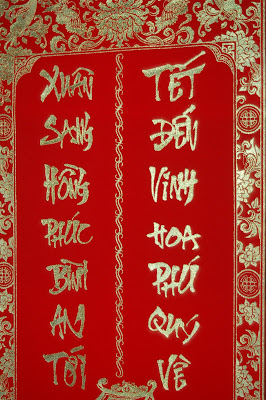 XUÂN SANG HỒNG PHÚC BÌNH AN TỚI
TẾT ĐẾN VINH HOA PHÚ QUÝ VỀ